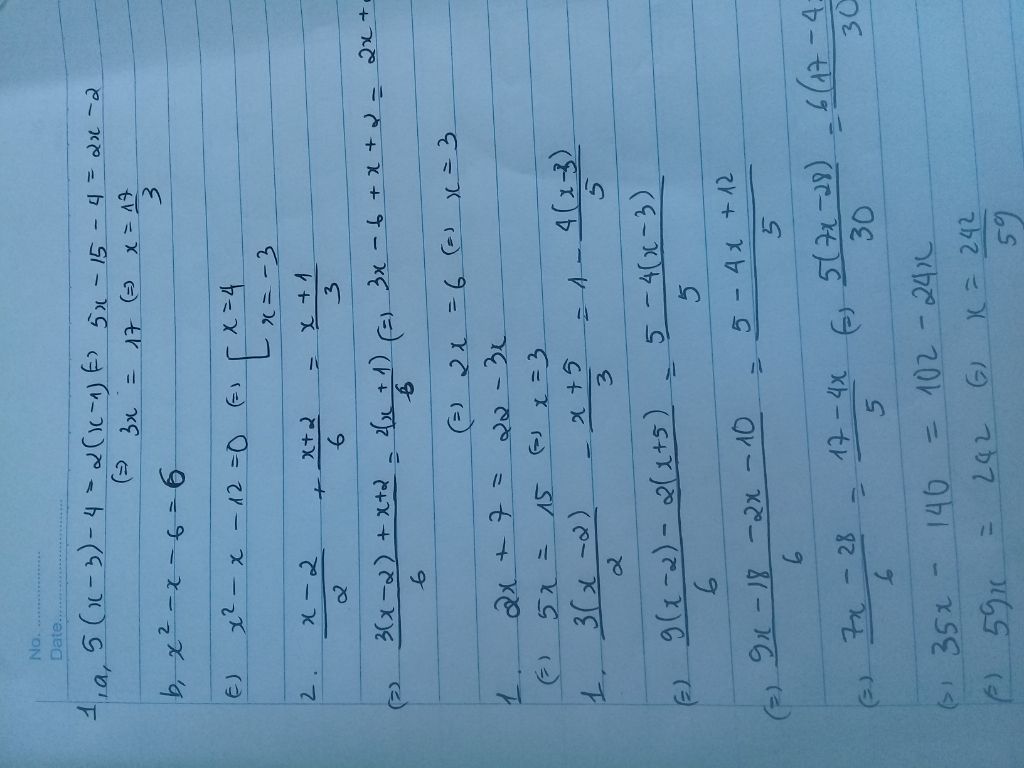 No. ............
Date. ............
1, a, 5(x-3)-4 = 2(x-1) (=) 5x-15-4 = 2x-2
(=) 3x = 17 (=) x = 17/3
b, x² - x - 6 = 6
(=) x² - x - 12 = 0 (=) [ x = 4
x = -3
2. (x-2)/2 + (x+2)/6 = (x+1)/3
(=) (3(x-2) + x+2)/6 = 2(x+1)/6 (=) 3x - 6 + x + 2 = 2x +
(=) 2x = 6 (=) x = 3
1. 2x + 7 = 22 - 3x
(=) 5x = 15 (=) x = 3
1. 3(x-2)/2 - (x+5)/3 = 1 - 4(x-3)/5
(=) (9(x-2) - 2(x+5))/6 = (5 - 4(x-3))/5
(=) (9x - 18 - 2x - 10)/6 = (5 - 4x + 12)/5
(=) (7x - 28)/6 = (17 - 4x)/5 (=) 5(7x - 28)/30 = 6(17 - 4/30
(=) 35x - 140 = 102 - 24x
(=) 59x = 242 (=) x = 242/59